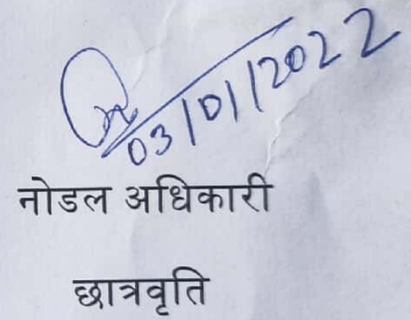 03/01/2022
नोडल अधिकारी
छात्रवृति